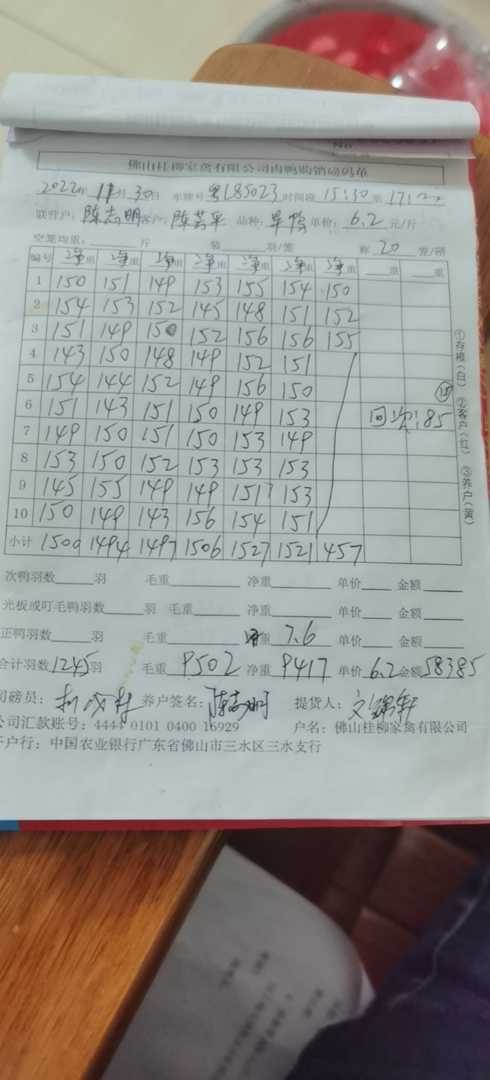 No
佛山桂柳家禽有限公司肉鸭购销磅码单
2022年 11月 30日 车牌号 粤L85023 时间段 15:30 至 17:
联养户: 陈志明 客户: 陈芸平 品种: 单价: 6.2 元/斤
空笼均重: 斤 装 羽/笼 称 20 笼/磅
编号 净重 净重 净重 净重 净重 净重 净重 重 重
1 150 151 149 153 155 154 150
2 154 153 152 145 148 151 152
3 151 149 150 152 156 156 155
4 143 150 148 149 152 151
5 154 144 152 149 156 150
6 151 143 151 150 149 153 回次:85
7 149 150 151 150 153 149
8 153 150 152 153 153 153
9 145 155 149 149 151 153
10 150 149 143 156 154 151
小计 1500 1494 1497 1506 1527 1521 457
①存根(白) ②客户(红) ③养户(黄)
次鸭羽数 羽 毛重 净重 单价 金额
光板或叮毛鸭羽数 羽 毛重 净重 单价 金额
正鸭羽数 羽 毛重 重 7.6 单价 金额
合计羽数 1245 羽 毛重 9502 净重 9417 单价 6.2 金额 58385
司磅员: 养户签名: 陈志明 提货人:
公司汇款账号: 4444 0101 0400 16929 户名: 佛山桂柳家禽有限公司
开户行: 中国农业银行广东省佛山市三水区三水支行